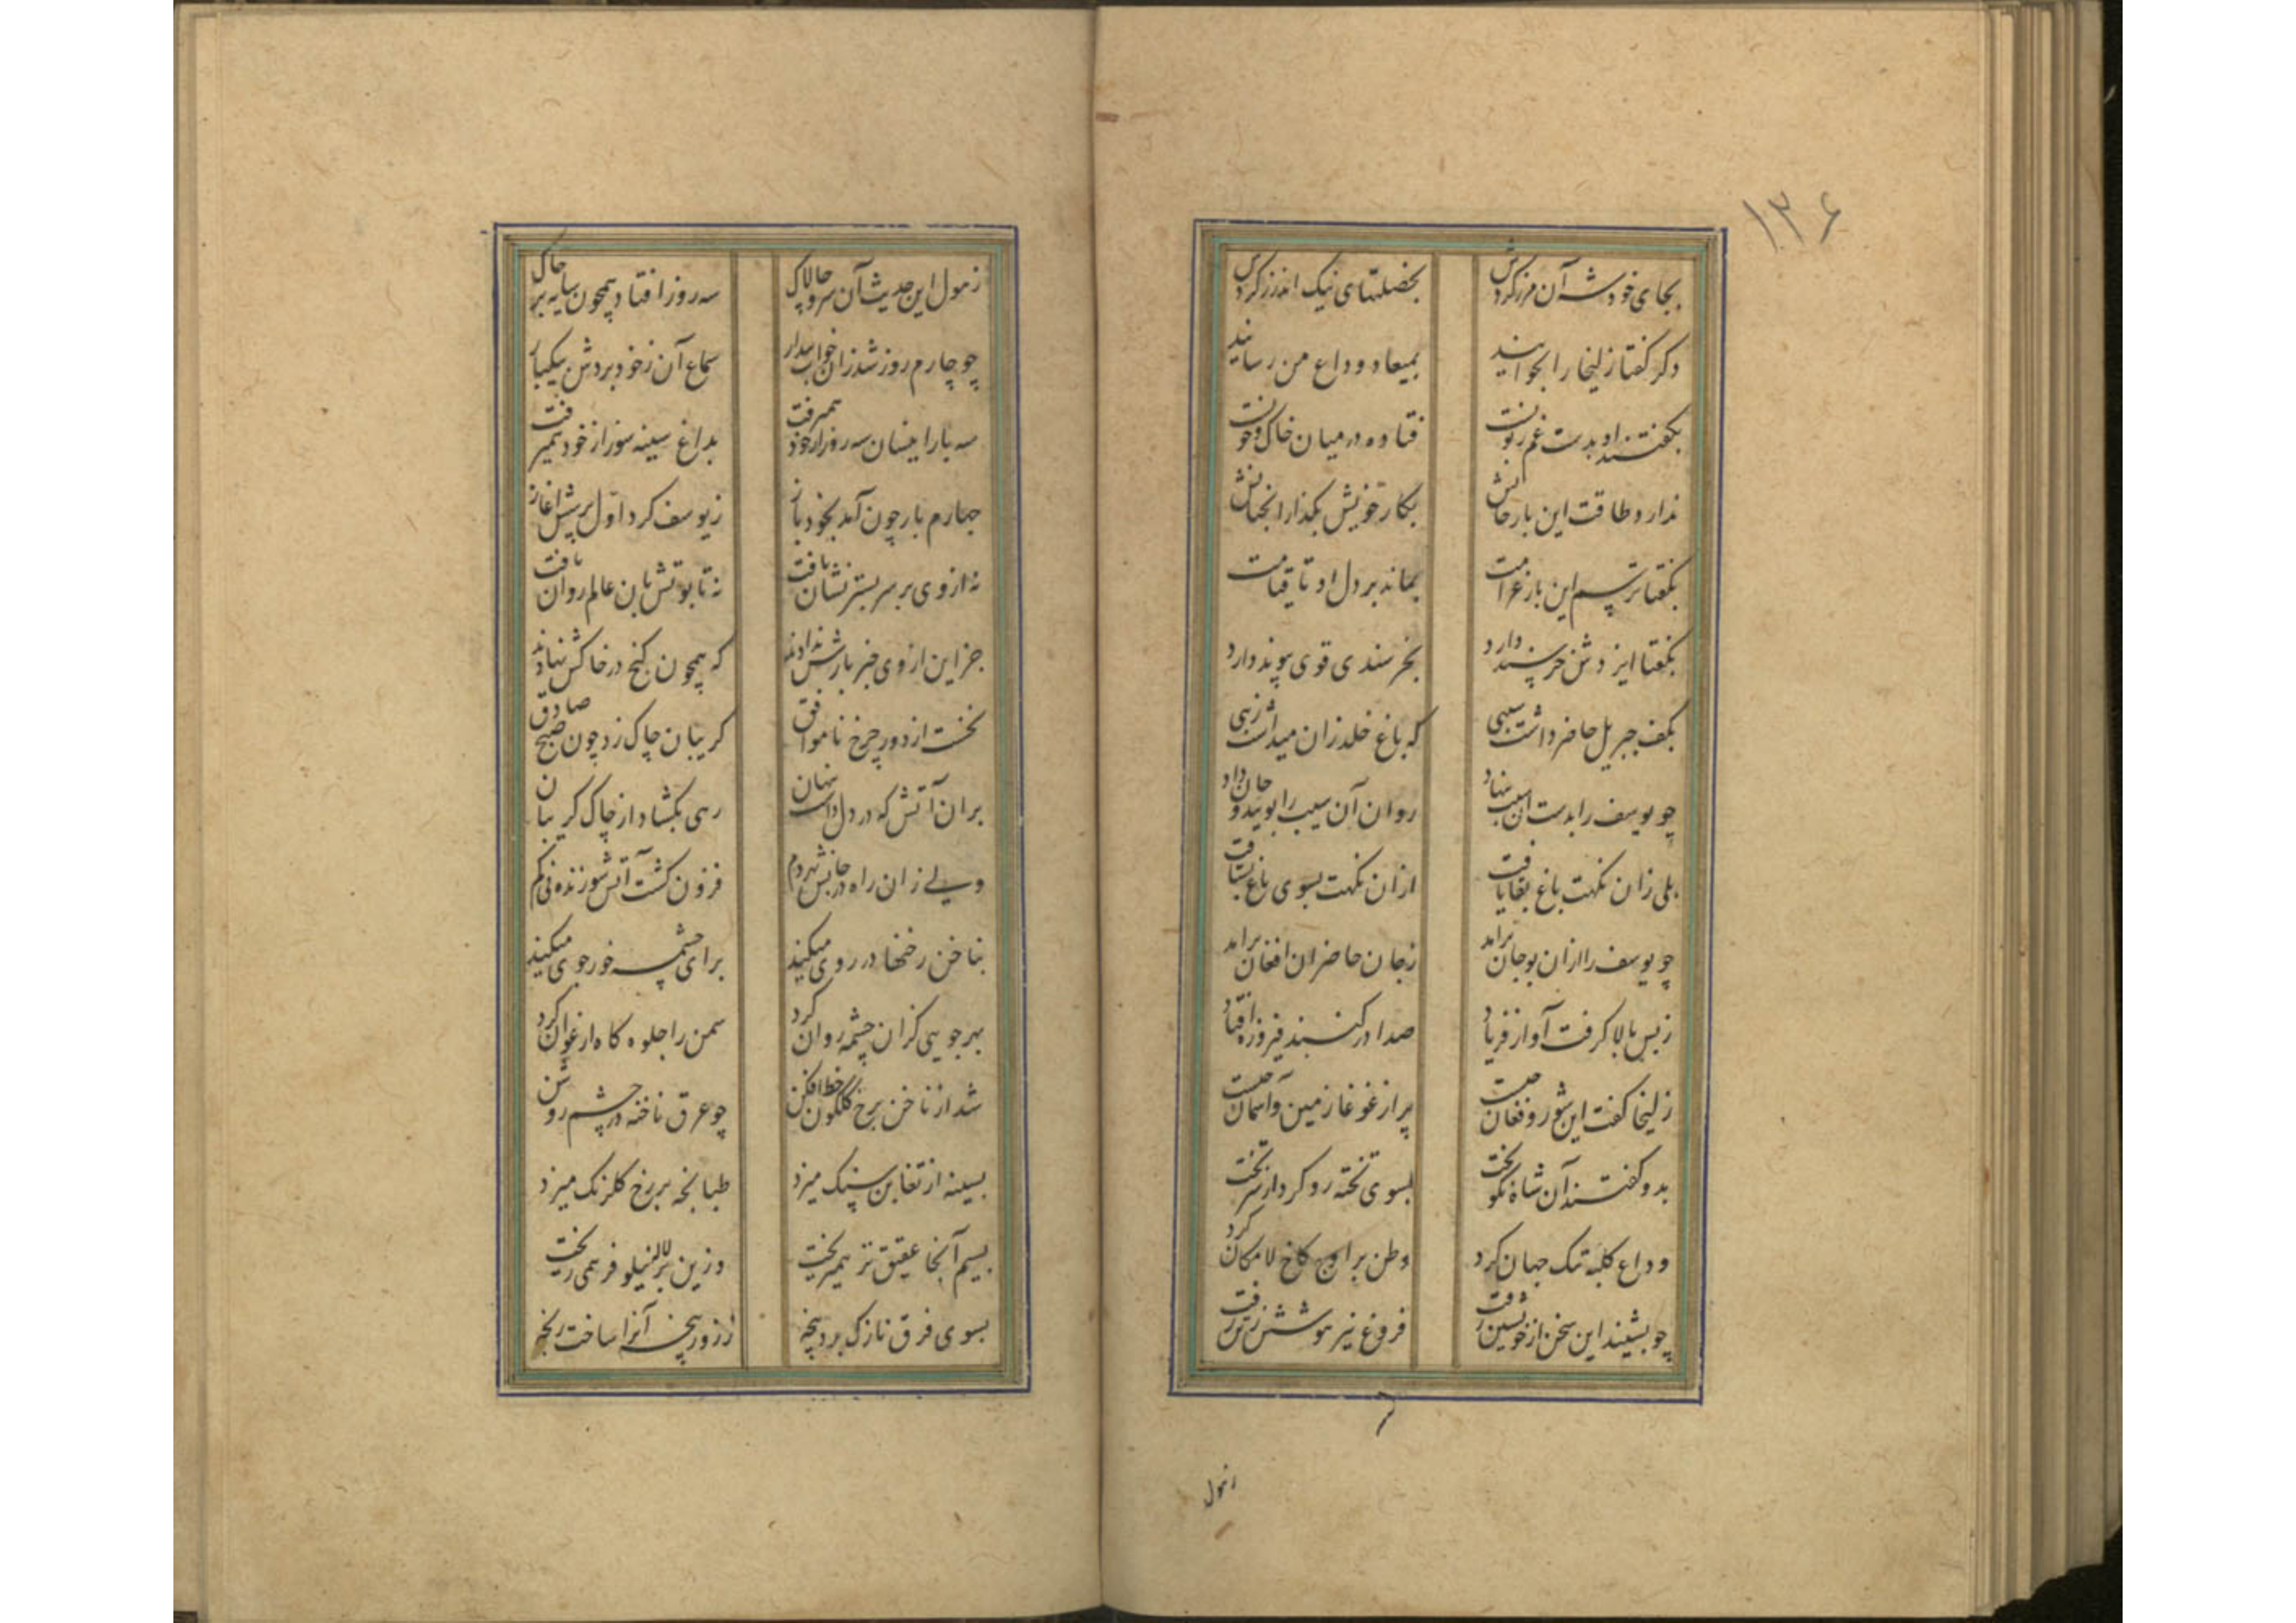 ۱۳۶
بجای خود شه آن مرز کردش بخصلتهای نیک اندرز کردش
دکر کفتا زلیخا را بخوانید بمیعاد وداع من رسانید
بکفتند او بدست غم زبونست فتاده در میان خاک و خونست
ندارد طاقت این بار جانش بکار خویش بکذار آنچنانش
بکفتا ترسم این بار غرامت بماند بر دل او تا قیامت
بکفتا ایزدش خرسند دارد بخرسندی قوی پیوند دارد
بکف جبریل حاضر داشت سیبی که باغ خلد زان میداشت زیبی
چو یوسف را بدست آن سیب بنهاد روان آن سیب را بویید و جان داد
بلی زان نکهت باغ بقا یافت ازان نکهت بسوی باغ بشتافت
چو یوسف را ازان بو جان برآمد زجان حاضران افغان برآمد
زبس بالا کرفت آواز فریاد صدا در کنبد فیروزه افتاد
زلیخا کفت این شور و فغان چیست پر از غوغا زمین و آسمان چیست
بدو کفتند آن شاه نکوبخت بسوی تخته رو کرد از سر تخت
وداع کلبه تنک جهان کرد وطن بر اوج کاخ لامکان کرد
چو بشنید این سخن از خویشتن رفت فروغ نیر هوشش ز تن رفت
زهول
زهول این حدیث آن سرو چالاک سه روز افتاد همچون سایه بر خاک
چو چارم روز شد زان خواب بیدار سماع آن زخود بردش یکبار
سه بار اینسان سه روز از خود همی رفت بداغ سینه سوز از خود همی رفت
چهارم بار چون آمد بخود باز زیوسف کرد اول پرسش آغاز
نه از وی بر سر بستر نشان یافت نه تابوتش باین عالم روان یافت
جز این از وی خبر بازش ندادند که همچون کنج در خاکش نهادند
نخست از دور چرخ ناموافق کریبان چاک زد چون صبح صادق
بران آتش که در دل داشت پنهان رهی بکشاد از چاک کریبان
ولی زان راه در جانش بهر دم فزون کشت آتش سوزنده نی کم
بناخن رخنها در روی میکند برای چشمه خور جوی میکند
بهر جویی کزان چشمه روان کرد سمن را جلوه کاه ارغوان کرد
شد از ناخن برخ کلکون خط افکن چو عرق ناخنه در چشم روشن
بسینه از تغابن سنک میزد طبانجه بر رخ کلرنک میزد
بسیم آنجا عقیق تر همیریخت وزین بر لاله نیلوفر همی ریخت
بسوی فرق نازک برد پنجه ززور پنجه آنرا ساخت رنجه